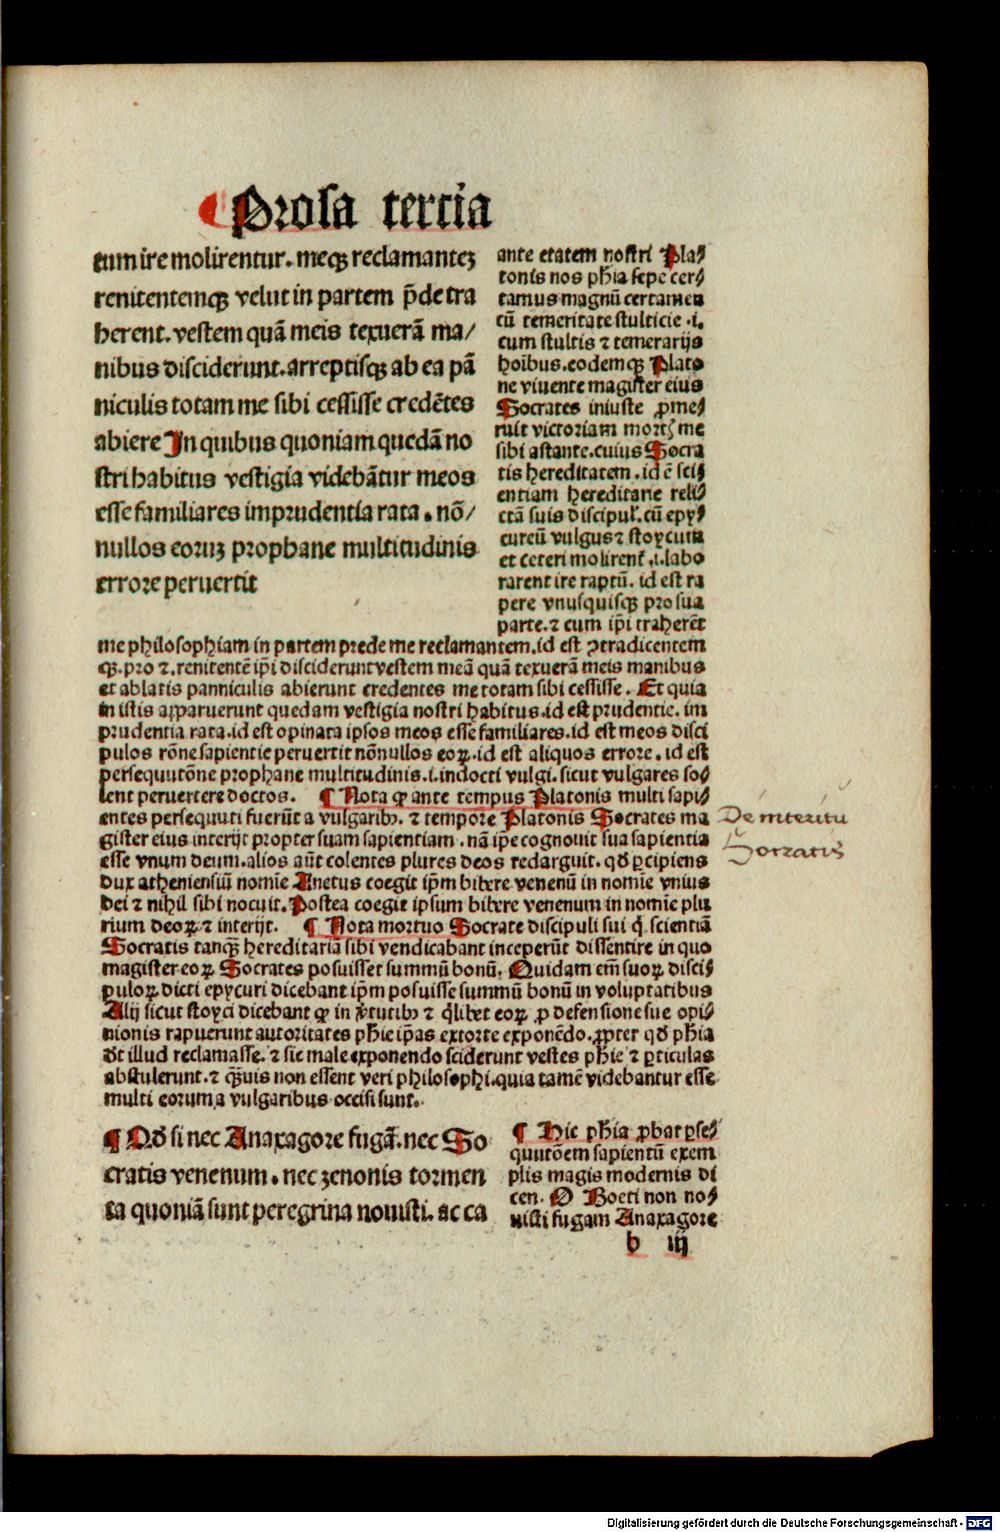 ¶ Prosa tercia
tum ire molirentur. meqꝫ reclamanteꝫ
renitentemqꝫ velut in partem p̄de tra
herent. vestem quā meis texuerā ma/
nibus disciderunt. arreptisqꝫ ab ea pā
niculis totam me sibi cessisse credētes
abiere In quibus quoniam quedā no
stri habitus vestigia videbātur meos
esse familiares imprudentia rata. nō/
nullos eoruꝫ prophane multitudinis
errore peruertit
ante etatem nostri Pla/
tonis nos ph̄ia sepe cer/
tamus magnū certamen
cū temeritate stulticie .i.
cum stultis ⁊ temerarijs
hoībus. eodemqꝫ Plato
ne viuente magister eius
Socrates iniuste ꝓme/
ruit victoriam mortꝭ me
sibi astante. cuius Socra
tis hereditatem. id ē sci/
entiam hereditarie reli/
ctā suis discipul'. cū epy/
cureū vulgus ⁊ stoycum
et ceteri molirent᷑ .i. labo
rarent ire raptū. id est ra
pere vnusquisqꝫ pro sua
parte. ⁊ cum ip̄i traherēt
me philosophiam in partem prede me reclamantem. id est ꝯtradicentem
qꝫ. pro ⁊. renitentē ip̄i disciderunt vestem meā quā texuerā meis manibus
et ablatis panniculis abierunt credentes me totam sibi cessisse. Et quia
in istis apparuerunt quedam vestigia nostri habitus. id est prudentie. im
prudentia rata. id est opinata ipsos meos esse familiares. id est meos disci
pulos rōne sapientie peruertit nōnullos eoꝝ. id est aliquos errore. id est
persequutōne prophane multitudinis. i. indocti vulgi. sicut vulgares so/
lent peruertere doctos. ¶ Nota ꝙ ante tempus Platonis multi sapi/
entes persequuti fuerūt a vulgaribꝰ. ⁊ tempore Platonis Socrates ma
gister eius interijt propter suam sapientiam. nā ip̄e cognouit sua sapientia
esse vnum deum. alios aūt colentes plures deos redarguit. qd̄ ꝑcipiens
dux atheniensiū nomīe Anetus coegit ip̄m bibere venenū in nomīe vnius
dei ⁊ nihil sibi nocuit. Postea coegit ipsum bibere venenum in nomīe plu
rium deoꝝ ⁊ interijt. ¶ Nota mortuo Socrate discipuli sui q̄ scientiā
Socratis tanqꝫ hereditariā sibi vendicabant inceperūt dissentire in quo
magister eoꝝ Socrates posuisset summū bonū. Quidam em̄ suoꝝ disci/
puloꝝ dicti epycuri dicebant ip̄m posuisse summū bonū in voluptatibus
Alij sicut stoyci dicebant ꝙ in v̄tutibꝰ ⁊ q̄libet eoꝝ ꝓ defensione sue opi/
nionis rapuerunt autoritates phie ip̄as extorte exponēdo. ꝓpter qd̄ ph̄ia
d̄t illud reclamasse. ⁊ sic male exponendo sciderunt vestes phie ⁊ ꝑticulas
abstulerunt. ⁊ qꝫuis non essent veri philosophi. quia tamē videbantur esse
multi eorum a vulgaribus occisi sunt.
¶ Qd̄ si nec Anaxagore fugā. nec So
cratis venenum. nec zenonis tormen
ta quoniā sunt peregrina nouisti. at ca
¶ Hic ph̄ia ꝓbat ꝑse/
quutōem sapientū exem
plis magis modernis di
cen. O Boeti non no/
uisti fugam Anaxagore
b iij
De interitu
Socratis
Digitalisierung gefördert durch die Deutsche Forschungsgemeinschaft - DFG